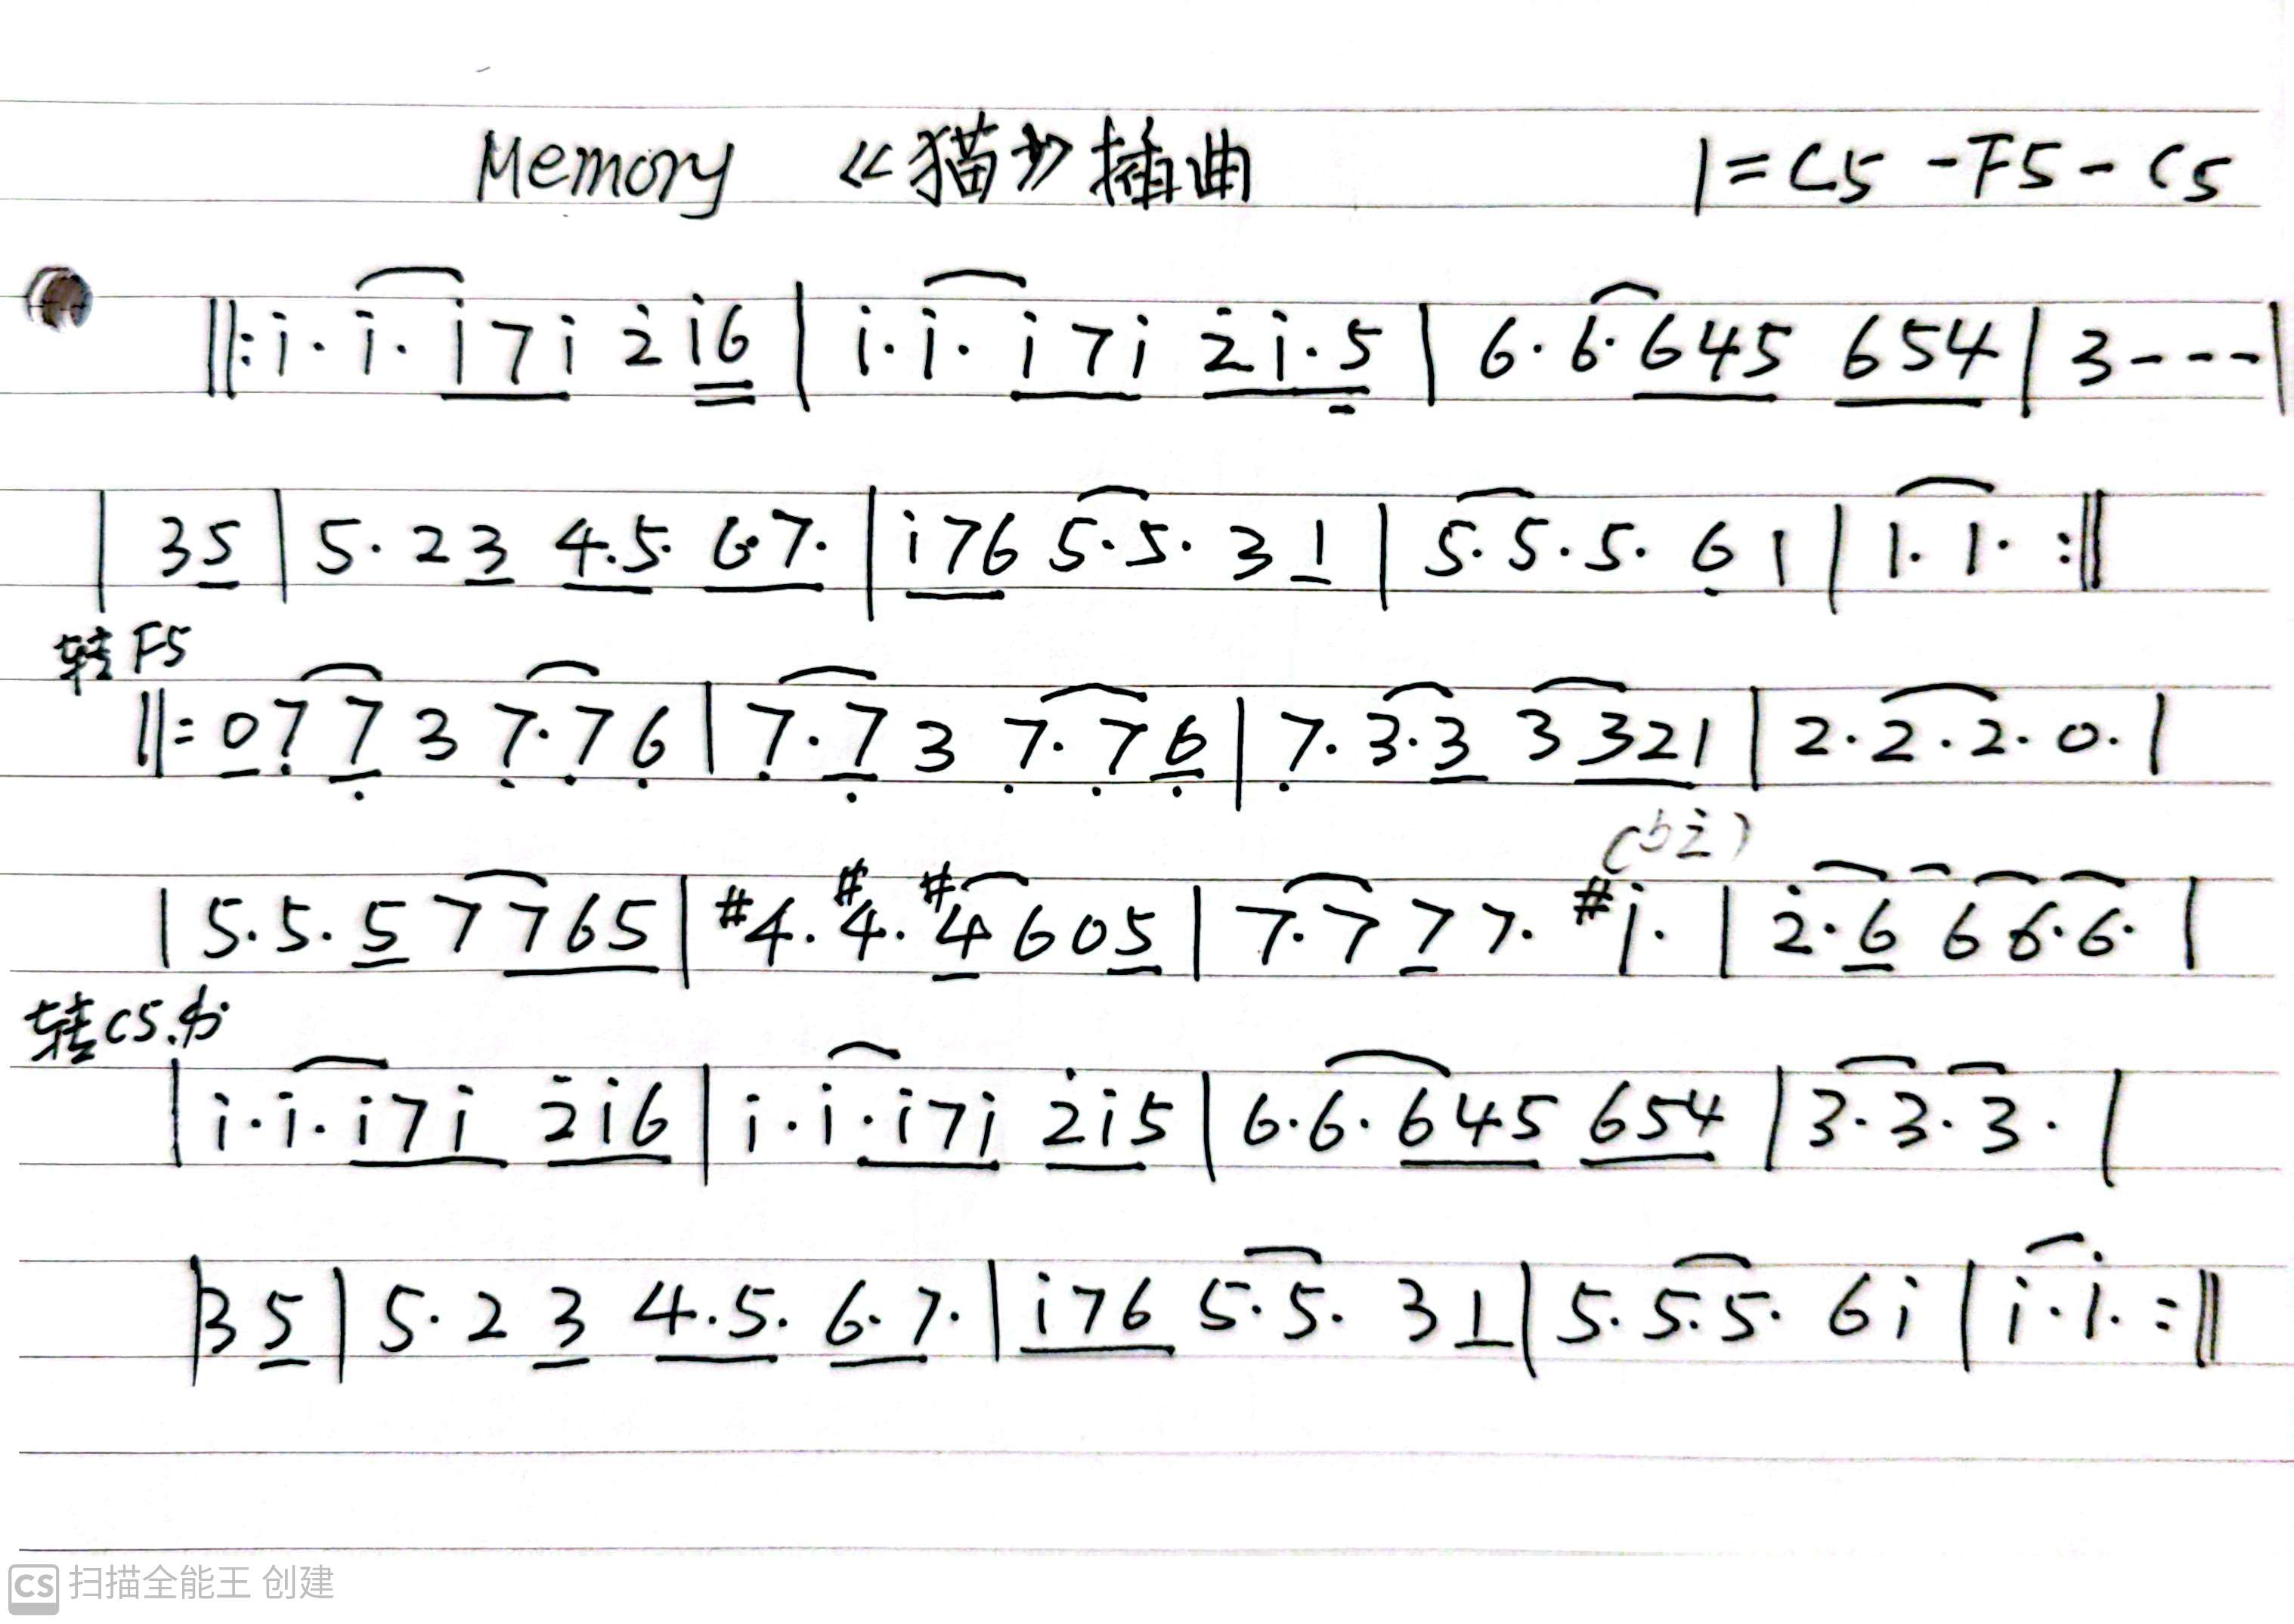 Memory 《猫》插曲 1=C5-F5-C5
‖:i· i· i7i 2̇ i6 | i·i· i7i 2̇i·5 | 6·6·645 654 | 3---|
| 35 | 5·23 4·5· 6·7· | i76 5·5· 31 | 5·5·5· 6̣1 | 1·1· :‖
转F5
‖: 07̣7̣ 3 7̣·7̣6̣ | 7̣·7̣ 3 7̣·7̣6̣ | 7̣·3·3 3321 | 2·2·2·0· |
(b2̇)
| 5·5·5 7765 | #4·#4·#4605 | 7·77 7· #i· | 2̇·6 66·6· |
转C5
| i·i·i7i 2̇i6 | i·i·i7i 2̇i5 | 6·6·645 654 | 3·3·3· |
|35 | 5·23 4·5· 6·7· | i76 5·5· 31 | 5·5·5· 6i | i·i· :‖
CS 扫描全能王 创建